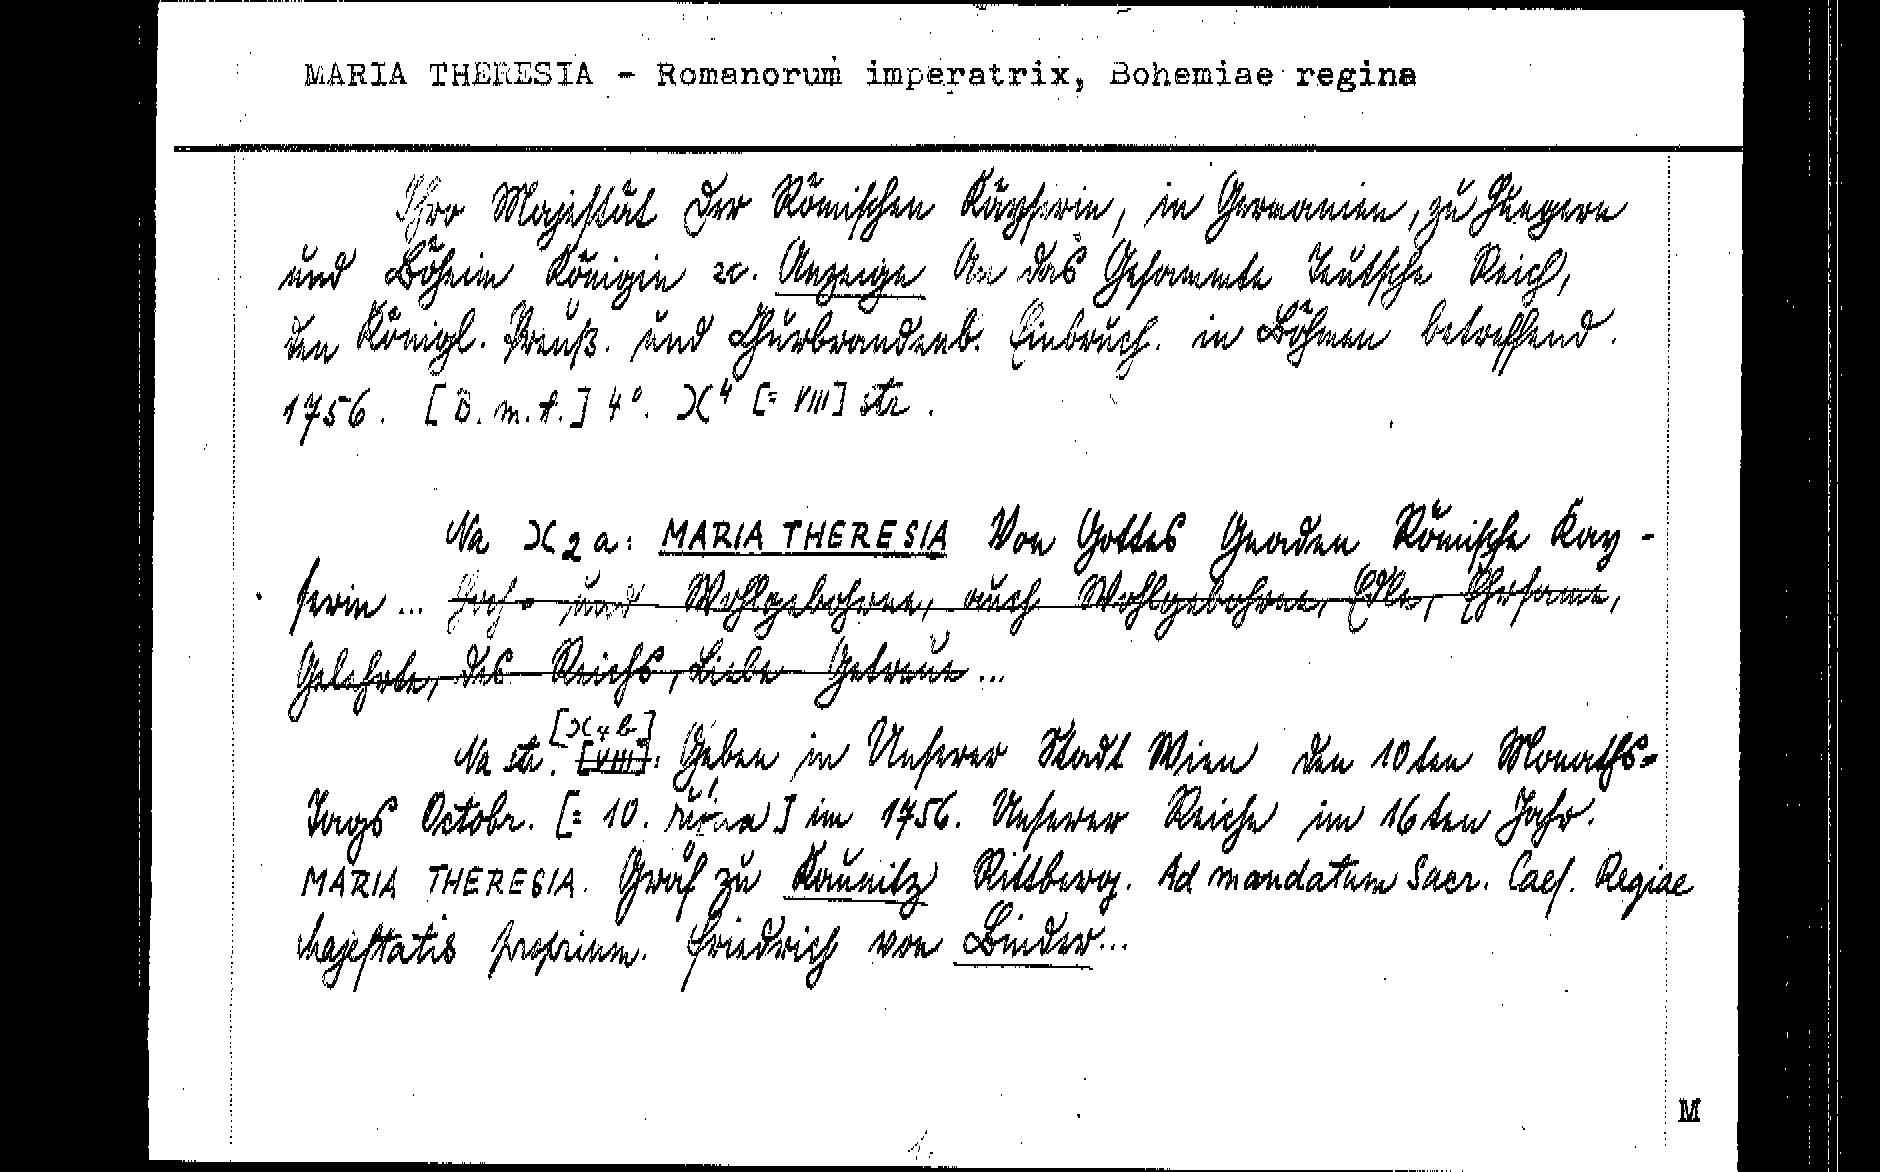 MARIA THERESIA - Romanorum imperatrix, Bohemiae regina
Ihro Majestät der Römischen Käyserin, in Germanien, zu Hungern
und Böheim Königin ꝛc. Anzeige An das Gesammte Teutsche Reich,
den Königl. Preuß. und Churbrandenb. Einbruch. in Böhmen betreffend.
1756. [B.m.t.] 4°. )(4 [= VIII] str.
Na )(2 a: MARIA THERESIA Von Gottes Gnaden Römische Kay-
serin ... Hoch- und Wohlgebohrne, auch Wohlgebohrne, Edle, Ehrsame,
Gelehrte, des Reichs, Liebe Getreue ...
[)(4 b]
Na str. [VIII]: Geben in Unserer Stadt Wien den 10ten Monaths-
Tags Octobr. [= 10. října] im 1756. Unserer Reiche im 16ten Jahr.
MARIA THERESIA. Graf zu Kaunitz Rittberg. Ad mandatum Sacr. Caes. Regiae
Majestatis proprium. Friedrich von Binder...
M
1.